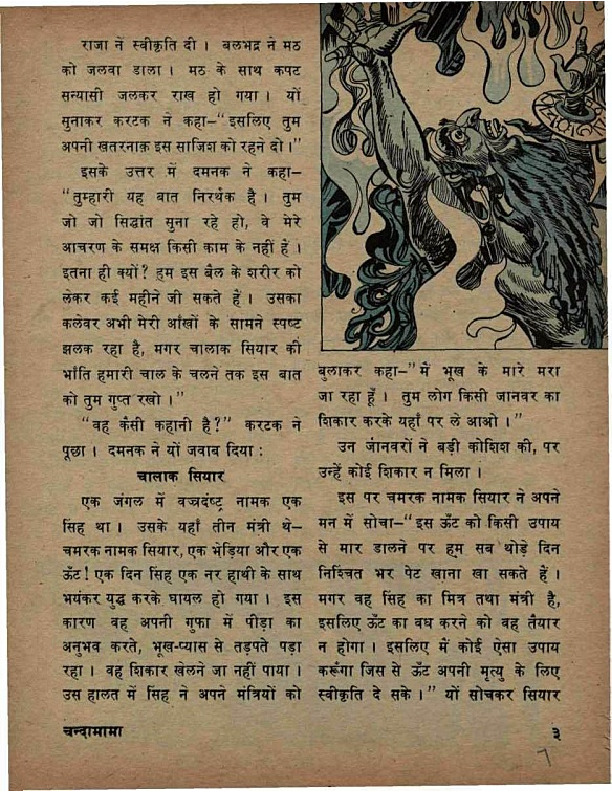 राजा ने स्वीकृति दी । बलभद्र ने मठ
को जलवा डाला । मठ के साथ कपट
सन्यासी जलकर राख हो गया । यों
सुनाकर करटक ने कहा–"इसलिए तुम
अपनी खतरनाक़ इस साजिश को रहने दो ।"
इसके उत्तर में दमनक ने कहा–
"तुम्हारी यह बात निरर्थक है । तुम
जो जो सिद्धांत सुना रहे हो, वे मेरे
आचरण के समक्ष किसी काम के नहीं हैं ।
इतना ही क्यों? हम इस बैल के शरीर को
लेकर कई महीने जी सकते हैं । उसका
कलेवर अभी मेरी आंखों के सामने स्पष्ट
झलक रहा है, मगर चालाक सियार की
भाँति हमारी चाल के चलने तक इस बात
को तुम गुप्त रखो ।"
"वह कैसी कहानी है?" करटक ने
पूछा । दमनक ने यों जवाब दिया :
चालाक सियार
एक जंगल में वज्रदंष्ट्र नामक एक
सिंह था । उसके यहाँ तीन मंत्री थे–
चमरक नामक सियार, एक भेड़िया और एक
ऊँट! एक दिन सिंह एक नर हाथी के साथ
भयंकर युद्ध करके घायल हो गया । इस
कारण वह अपनी गुफा में पीड़ा का
अनुभव करते, भूख-प्यास से तड़पते पड़ा
रहा । वह शिकार खेलने जा नहीं पाया ।
उस हालत में सिंह ने अपने मंत्रियों को
बुलाकर कहा–"मैं भूख के मारे मरा
जा रहा हूँ । तुम लोग किसी जानवर का
शिकार करके यहाँ पर ले आओ ।"
उन जानवरों ने बड़ी कोशिश की, पर
उन्हें कोई शिकार न मिला ।
इस पर चमरक नामक सियार ने अपने
मन में सोचा–"इस ऊँट को किसी उपाय
से मार डालने पर हम सब थोड़े दिन
निश्चित भर पेट खाना खा सकते हैं ।
मगर वह सिंह का मित्र तथा मंत्री है,
इसलिए ऊँट का वध करने को वह तैयार
न होगा । इसलिए मैं कोई ऐसा उपाय
करूँगा जिस से ऊँट अपनी मृत्यु के लिए
स्वीकृति दे सके ।" यों सोचकर सियार
चन्दामामा
३
7